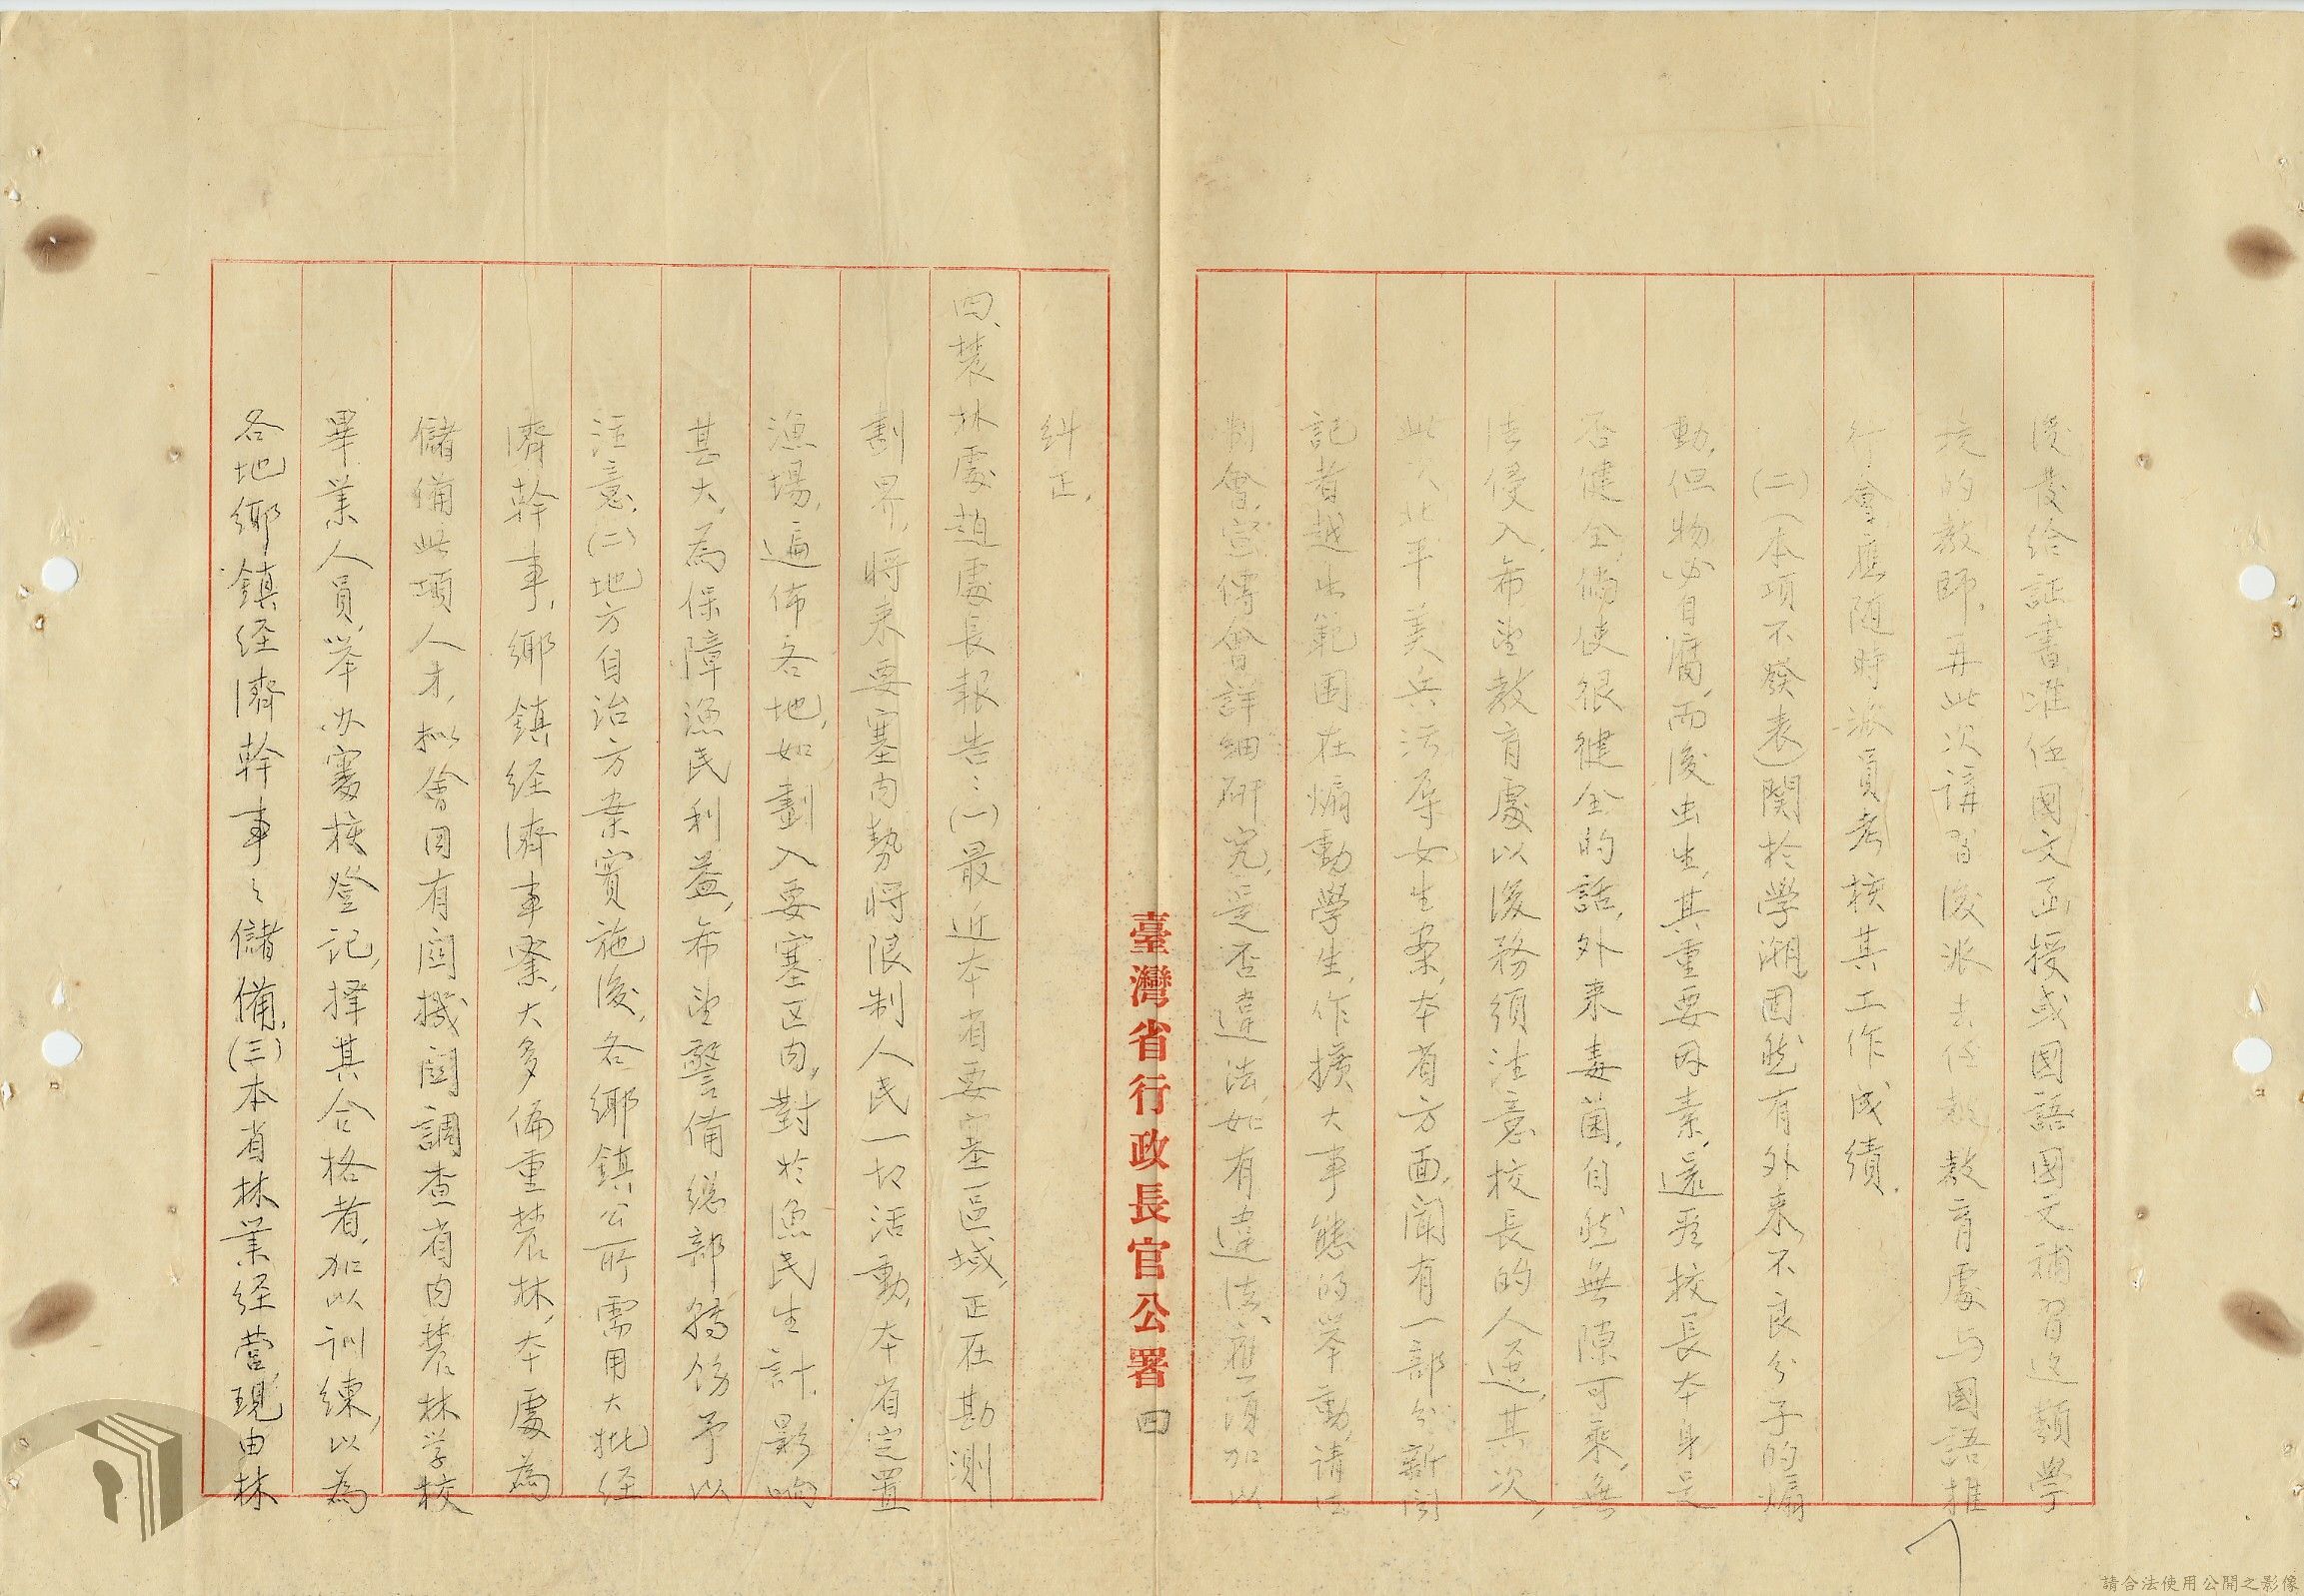 後發給証書准任國文函授或國語國文補習這類學
校的教師，再此次講習後派去任教，教育處与國語推
行會應随時派員考核其工作成績．
(二)(本项不發表)関於學潮，固然有外来不良分子的煽
動，但物必自腐，而後虫生，其重要因素，還在校長本身是
否健全，倘使很健全的話，外来毒菌，自然無隙可乘，無
法侵入，希望教育處以後務須注意校長的人選，其次，
此次北平美兵污辱女生案，本省方面，闻有一部分新闻
記者越出範圍在煽動學生，作擴大事態的举動，請法
制會，宣傳會詳細研究，是否違法，如有違法，應須加以
臺灣省行政長官公署 四
糾正．
四、農林處趙處長報告：(一)最近本省要塞區域，正在勘測
劃界，将来要塞内勢将限制人民一切活動，本省定置
漁場，遍佈各地，如劃入要塞区内，對於漁民生計．影响
甚大，為保障漁民利益，希望警備総部轉飭予以
注意．(二)地方自治方案實施後，各鄉鎮公所需用大批经
濟幹事，鄉鎮经濟事業，大多偏重農林，本處為
儲備此項人才，拟會同有関機関調查省内農林学校
畢業人員，举办審核登記，择其合格者，加以訓練，以為
各地鄉鎮经濟幹事之儲備．(三)本省林業经營，現由林
請合法使用公開之影像